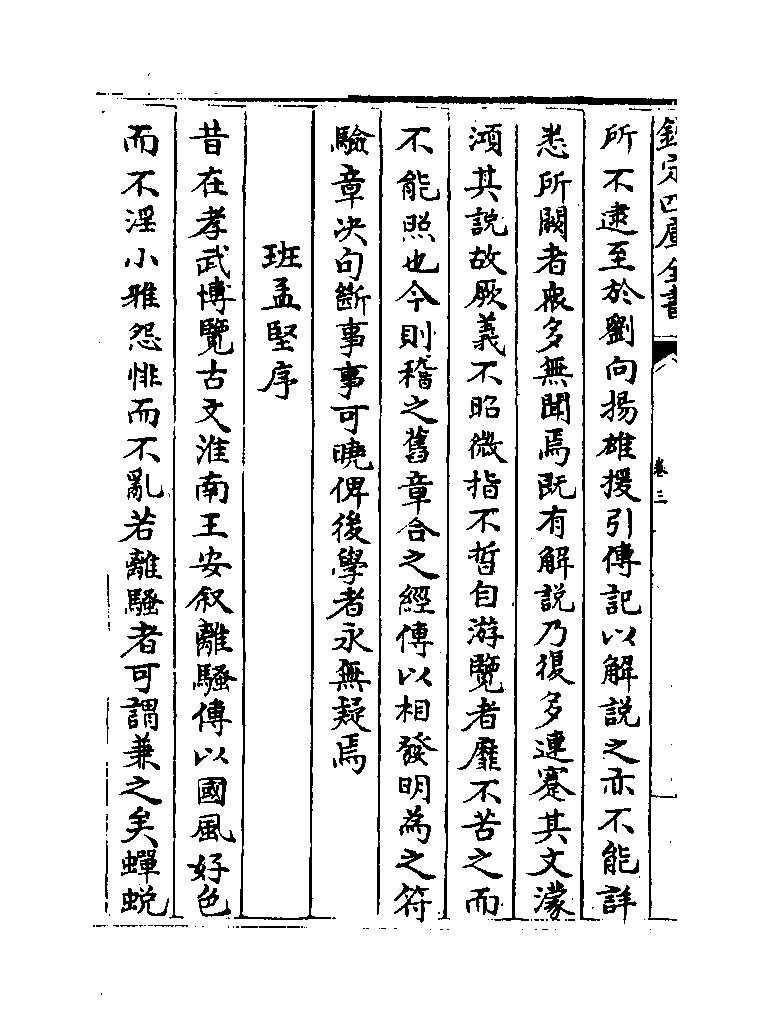 欽定四庫全書
卷三
所不逮至於劉向揚雄援引傳記以解說之亦不能詳
悉所闕者衆多無聞焉既有解說乃復多連蹇其文濛
澒其說故厥義不昭微指不晢自游覽者靡不苦之而
不能照也今則稽之舊章合之經傳以相發明為之符
驗章决句斷事事可曉俾後學者永無疑焉
班孟堅序
昔在孝武博覽古文淮南王安叙離騷傳以國風好色
而不淫小雅怨悱而不亂若離騷者可謂兼之矣蟬蛻